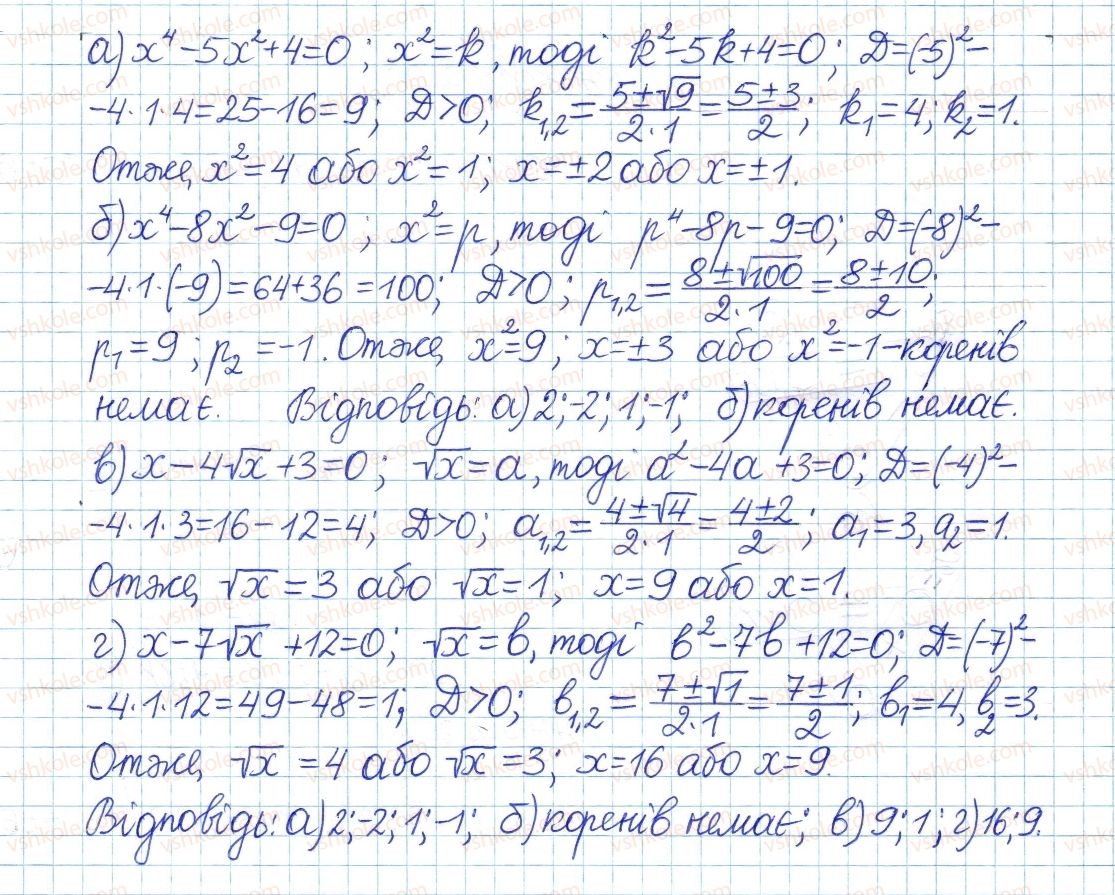 а) x⁴-5x²+4=0; x²=k, тоді k²-5k+4=0; Д=(-5)²-
-4·1·4=25-16=9; Д>0; k₁,₂=(5±√9)/(2·1)=(5±3)/2; k₁=4; k₂=1.
Отже, x²=4 або x²=1; x=±2 або x=±1.
б) x⁴-8x²-9=0; x²=p, тоді p⁴-8p-9=0; Д=(-8)²-
-4·1·(-9)=64+36=100; Д>0; p₁,₂=(8±√100)/(2·1)=(8±10)/2;
p₁=9; p₂=-1. Отже, x²=9; x=±3 або x²=-1-коренів
немає. Відповідь: а) 2;-2; 1;-1; б) коренів немає.
в) x-4√x+3=0; √x=a, тоді a²-4a+3=0; Д=(-4)²-
-4·1·3=16-12=4; Д>0; a₁,₂=(4±√4)/(2·1)=(4±2)/2; a₁=3, a₂=1.
Отже, √x=3 або √x=1; x=9 або x=1.
г) x-7√x+12=0; √x=в, тоді в²-7в+12=0; Д=(-7)²-
-4·1·12=49-48=1; Д>0; в₁,₂=(7±√1)/(2·1)=(7±1)/2; в₁=4, в₂=3.
Отже, √x=4 або √x=3; x=16 або x=9.
Відповідь: а) 2;-2; 1;-1; б) коренів немає; в) 9; 1; г) 16; 9.